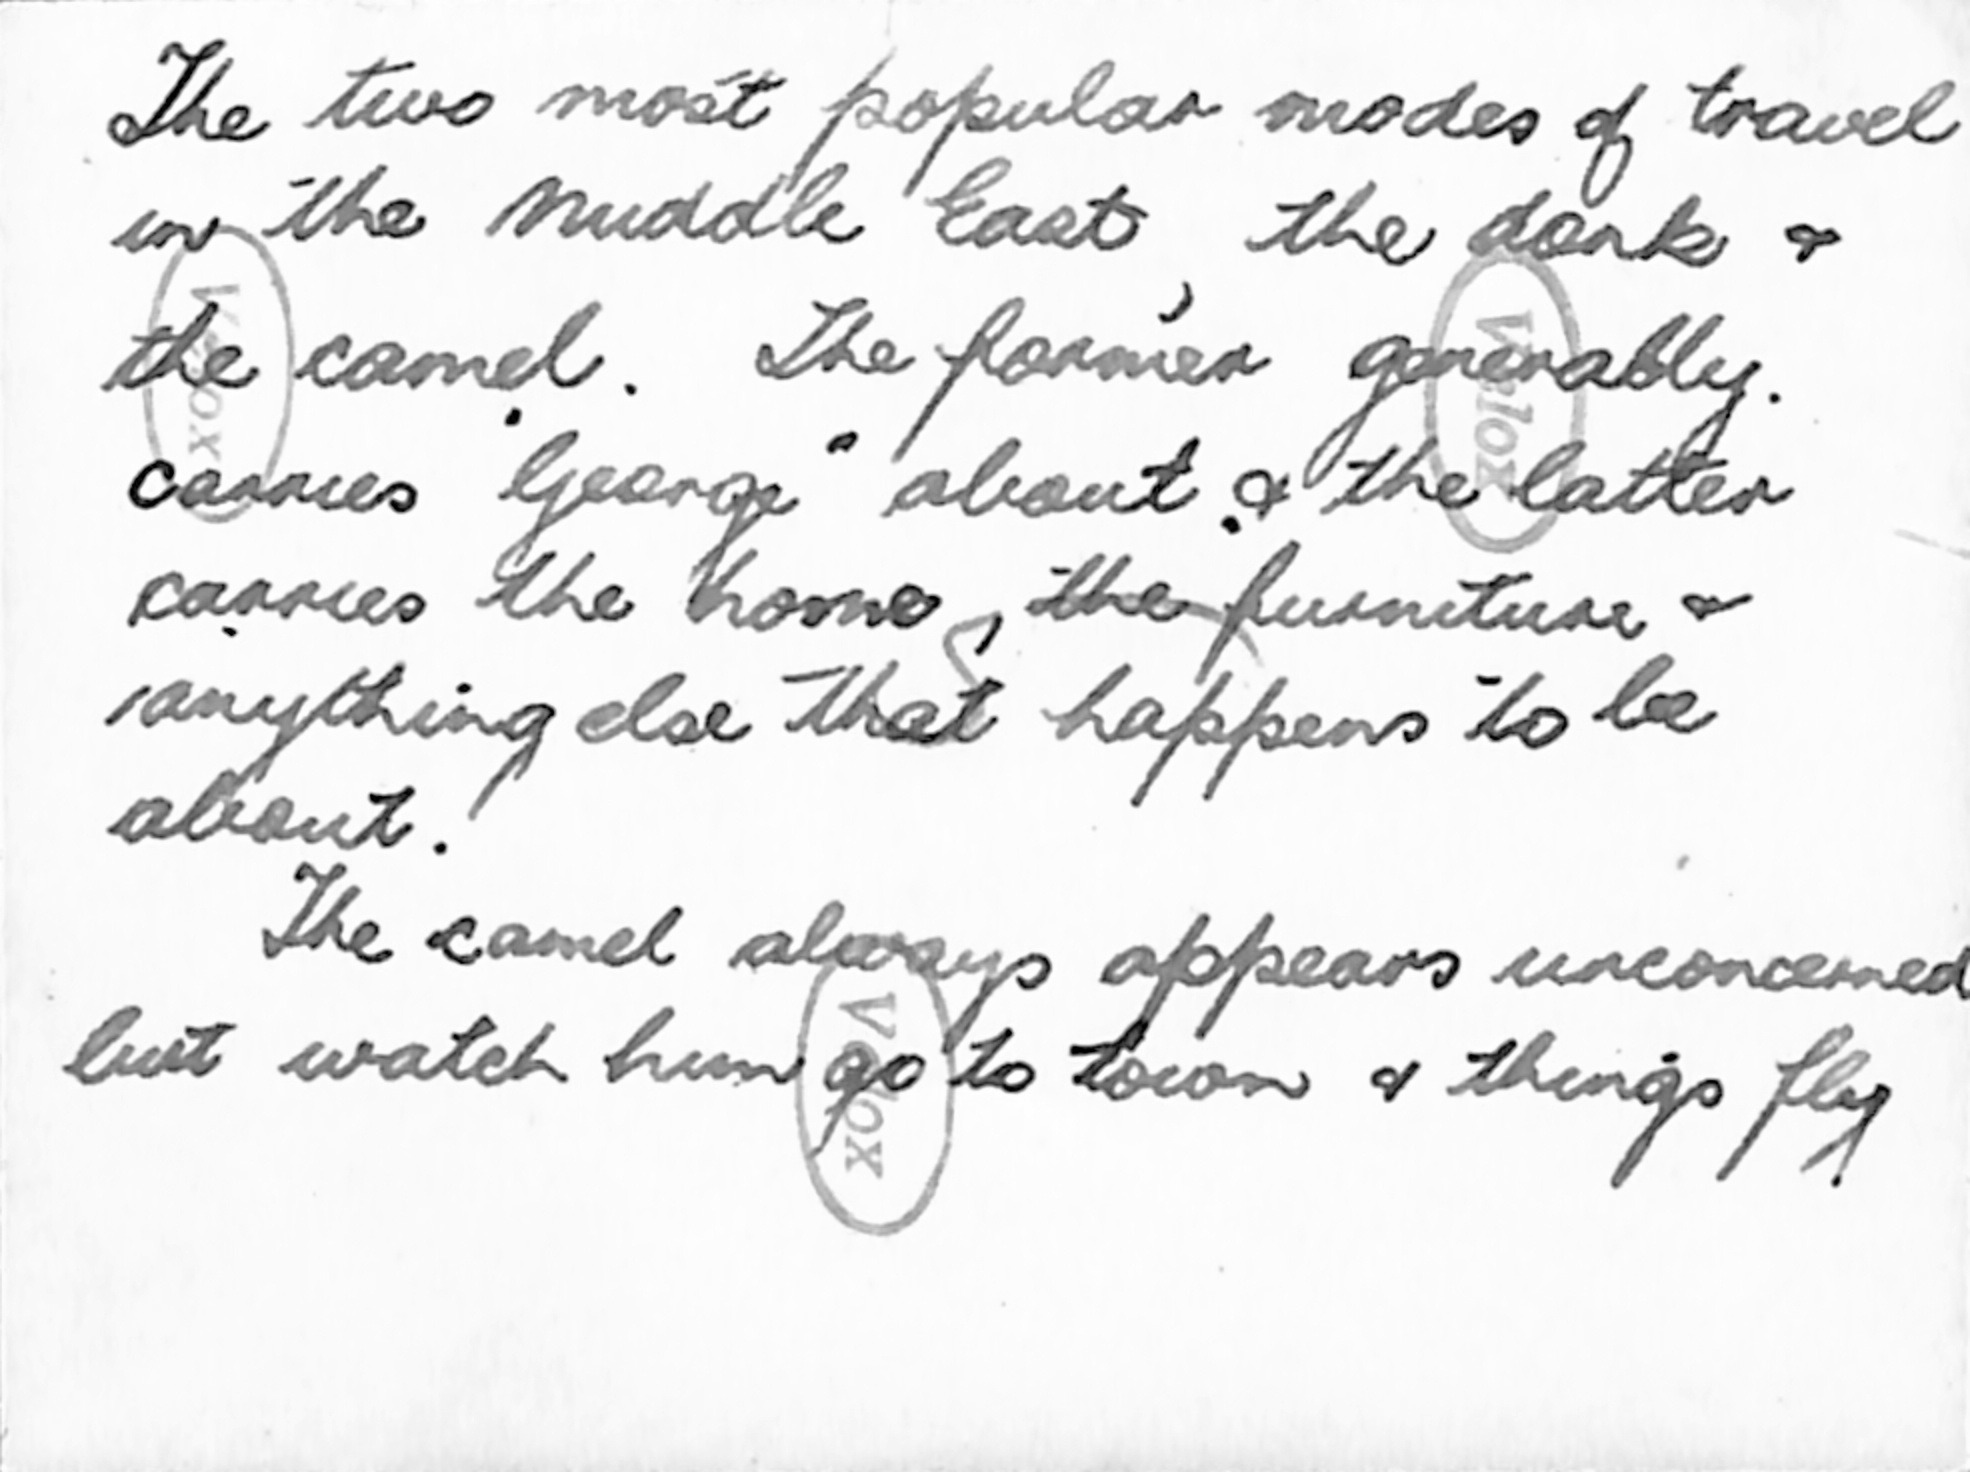 The two most popular modes of travel
in the Middle East, the donk &
the camel. The former generably.
carries "George" about & the latter
carries the home, the furniture &
anything else that happens to be
about.
The camel always appears unconcerned
but watch him go to town & things fly
Velox
Velox
Velox